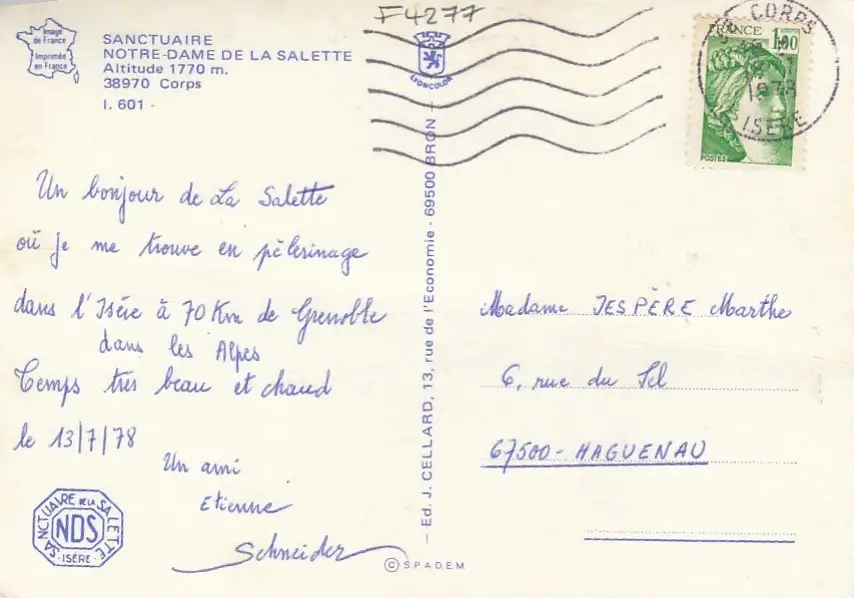 F4277
Image
de France
Imprimée
en France
SANCTUAIRE
NOTRE-DAME DE LA SALETTE
Altitude 1770 m.
38970 Corps
I. 601 -
LYONCOLOR
FRANCE 1,00
POSTES
CORPS
1978
ISERE
Un bonjour de La Salette
où je me trouve en pèlerinage
dans l'Isère à 70 Km de Grenoble
dans les Alpes
Temps très beau et chaud
le 13/7/78
Un ami
Etienne
Schneider
SANCTUAIRE DE LA SALETTE
NDS
- ISÈRE -
— Ed. J. CELLARD, 13, rue de l'Economie - 69500 BRON —
© SPADEM
Madame JESPÈRE Marthe
6, rue du Sel
67500 - HAGUENAU